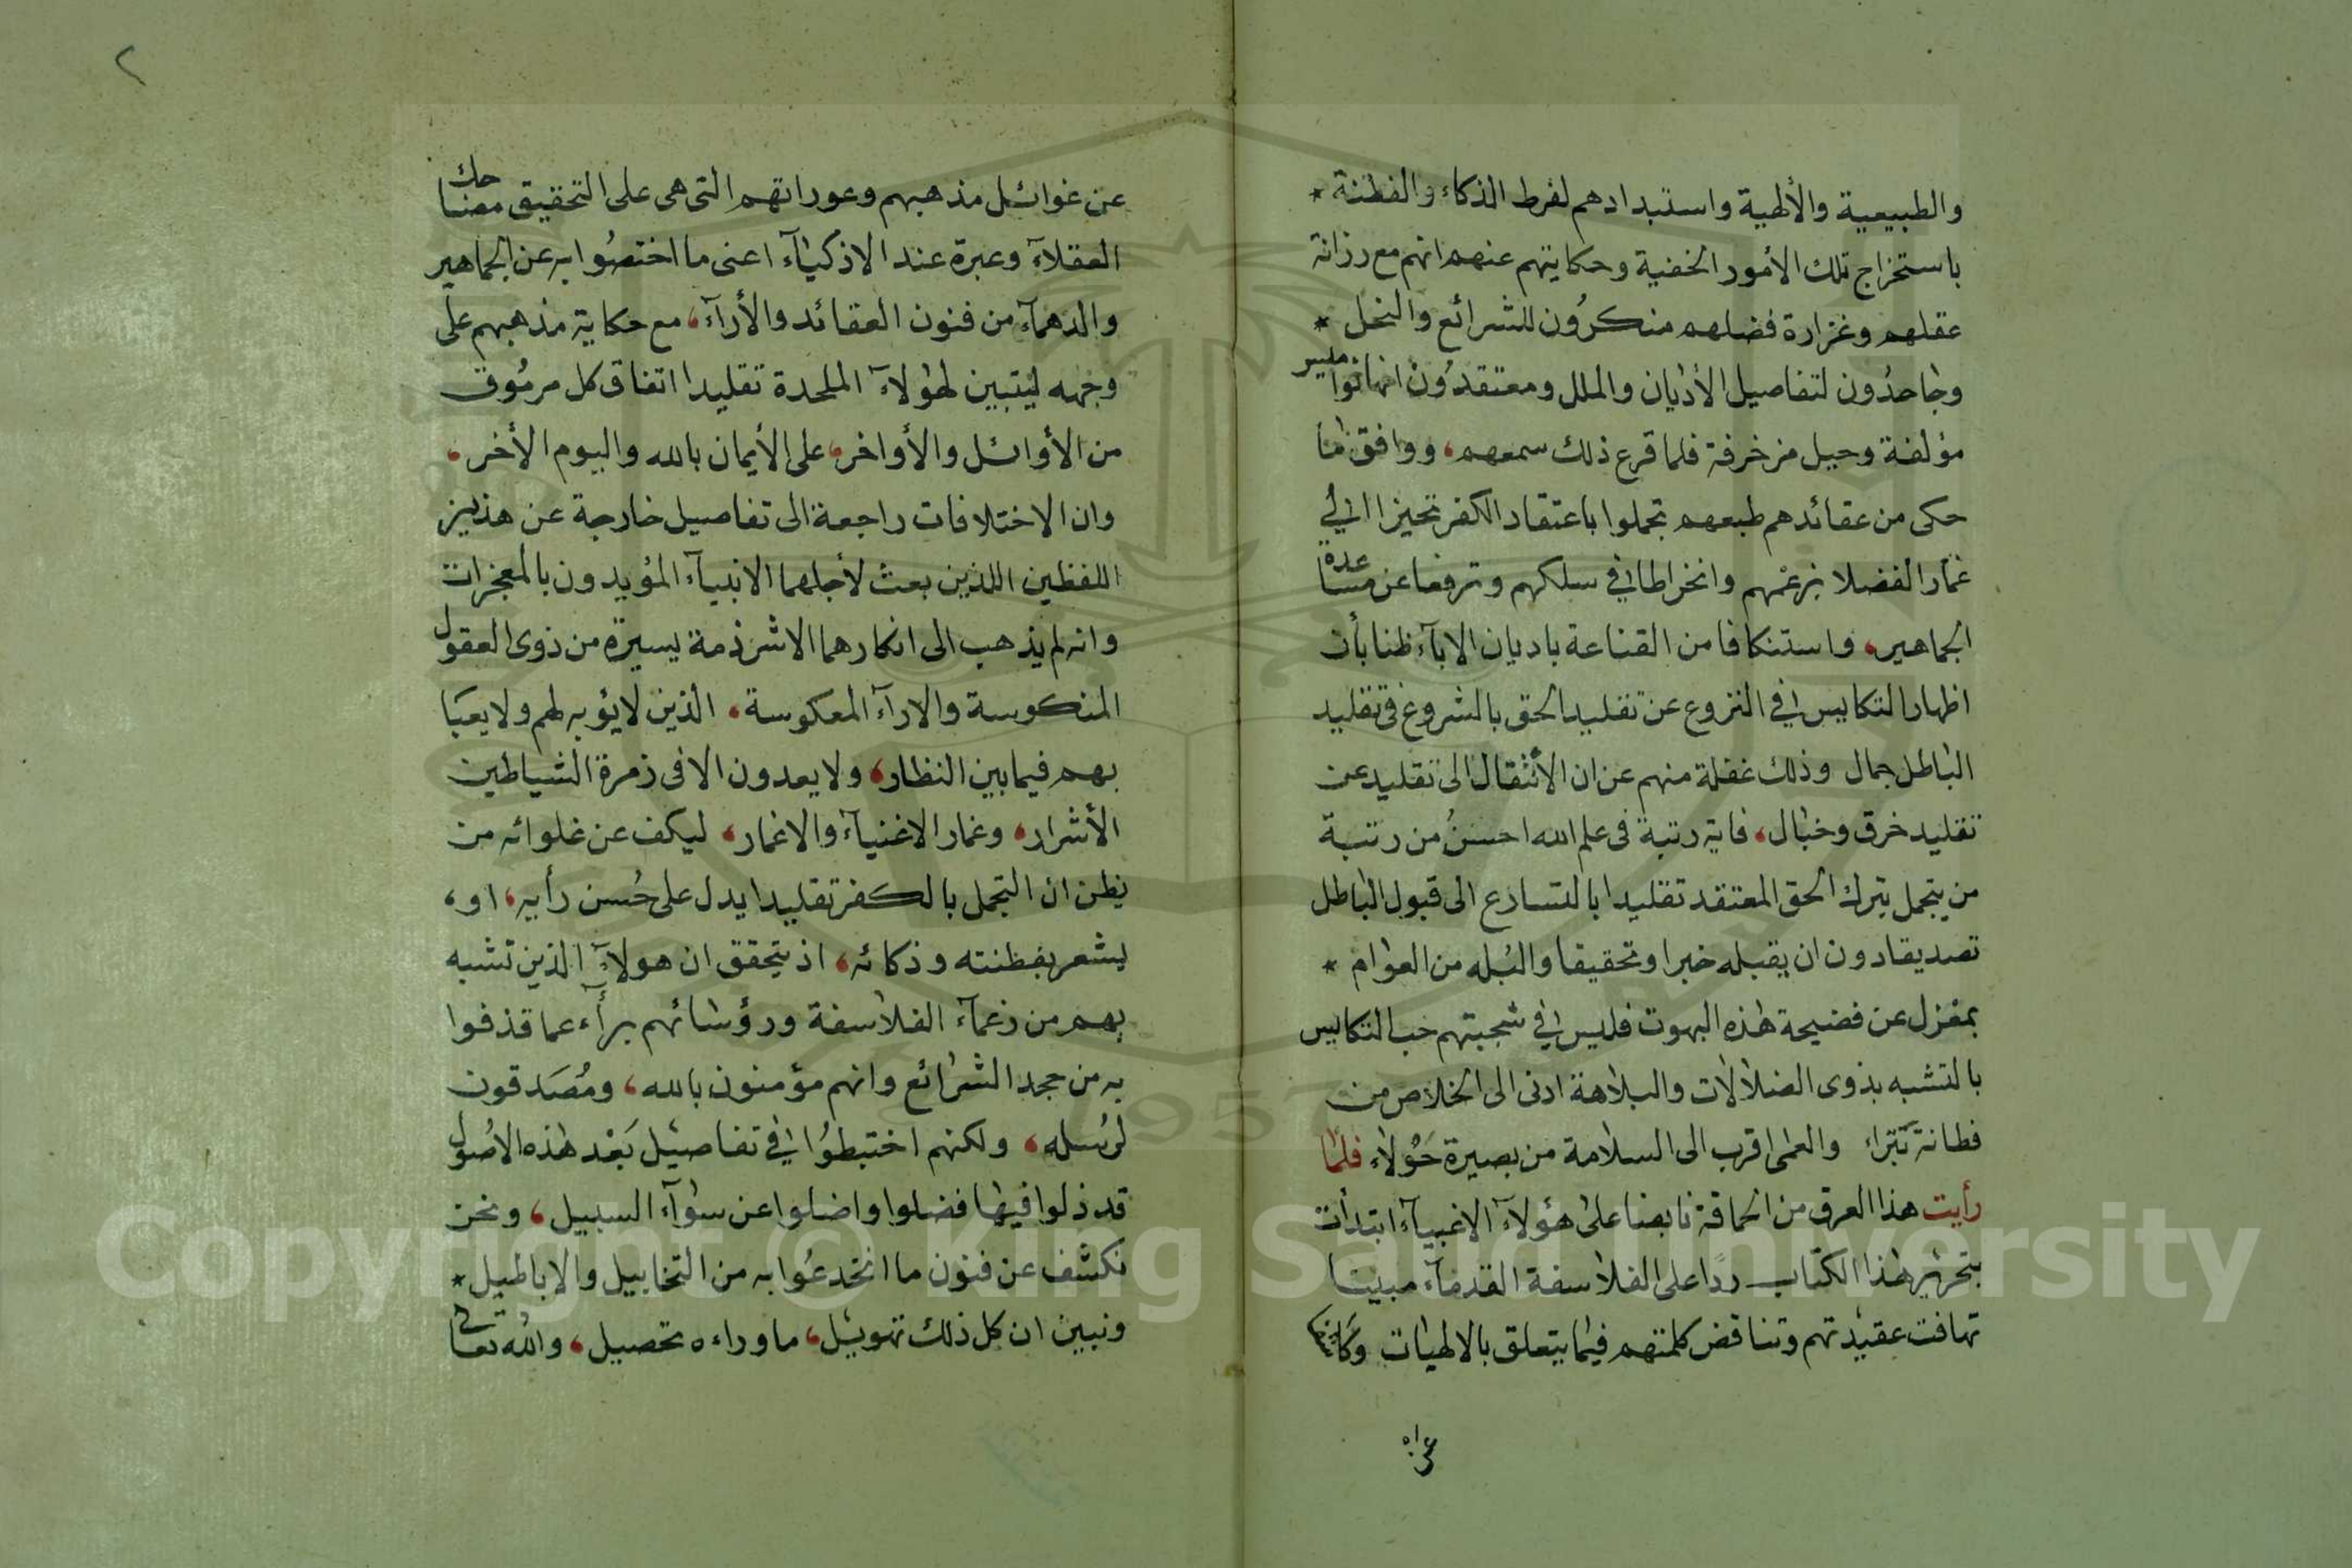 والطبيعية والألهية واستبدادهم لفرط الذكاء والفطنة *
باستخراج تلك الأمور الخفية وحكايتهم عنهم انهم مع رزانة
عقلهم وغزارة فضلهم منكرُون للشرائع والنحل *
وجاحدُون لتفاصيل الأديان والملل ومعتقدُون انها نواميس
مؤلفة وحيل مزخرفة فلما قرع ذلك سمعهم، ووافق ما
حكى من عقائدهم طبعهم تجملوا باعتقاد الكفر تحيزا الى
غمار الفضلا بزعمهم وانخراطا في سلكهم وترفعا عن مساعدة
الجماهير، واستنكافا من القناعة باديان الاباء ظنا بأن
اظهار التكايس في النزوع عن تقليد الحق بالشروع في تقليد
الباطل جمال وذلك غفلة منهم عن ان الأنتقال الى تقليد عن
تقليد خرق وخبال، فاية رتبة في علم الله احسنُ من رتبة
من يتجمل بترك الحق المعتقد تقليدا بالتسارع الى قبول الباطل
تصديقا دون ان يقبله خبرا وتحقيقا والبُله من العوام *
بمعزل عن فضيحة هذه البهوت فليس في سجيتهم حب التكايس
بالتشبه بذوى الضلالات والبلاهة ادنى الى الخلاص من
فطانة بتراء والعمى اقرب الى السلامة من بصيرة حَوْلاء فلمّا
رأيت هذا العرق من الحماقة نابضا على هؤلآء الاغبيآء ابتدأت
بتحرير هذا الكتاب ردّا على الفلاسفة القدمآء مبينا
تهافت عقيدتهم وتناقض كلمتهم فيما يتعلق بالالهيات وكاشفا
عن غوائل مذهبهم وعوراتهم التى هى على التحقيق مضاحك
العقلآء وعبرة عند الاذكيآء اعنى ما اختصُوا به عن الجماهير
والدهمآء من فنون العقائد والأرآء، مع حكاية مذهبهم على
وجهه ليتبين لهؤلآء الملحدة تقليدا اتفاق كل مرمُوق
من الأوائل والأواخر، على الأيمان بالله واليوم الأخر،
وان الاختلافات راجعة الى تفاصيل خارجة عن هذين
اللفظين اللذين بعث لأجلهما الانبيآء المؤيدون بالمعجزات
وانه لم يذهب الى انكارهما الا شرذمة يسيرة من ذوى العقول
المنكوسة والارآء المعكوسة، الذين لا يؤبه لهم ولا يعبَا
بهم فيما بين النظار، ولا يعدون الا فى زمرة الشياطين
الأشرار، وغمار الاغنيآء والاغمار، ليكف عن غلوائه من
يظن ان التجمل بالكفر تقليدا يدل على حُسن رأيه، او،
يشعر بفطنته وذكائه، اذ يتحقق ان هولآء الذين تشبه
بهم من زعمآء الفلاسفة ورؤسائهم برأء عما قذفوا
به من جحد الشرائع وانهم مؤمنون بالله، ومُصَدقون
لرُسله، ولكنهم اختبطوُا في تفاصيل بَعْد هذه الاصُول
قد زلوا فيها فضلوا واضلوا عن سوآء السبيل، ونحن
نكشف عن فنون ما انخدعُوا به من التخاييل والاباطيل *
ونبين ان كل ذلك تهويل، ما وراءه تحصيل، والله تعالى